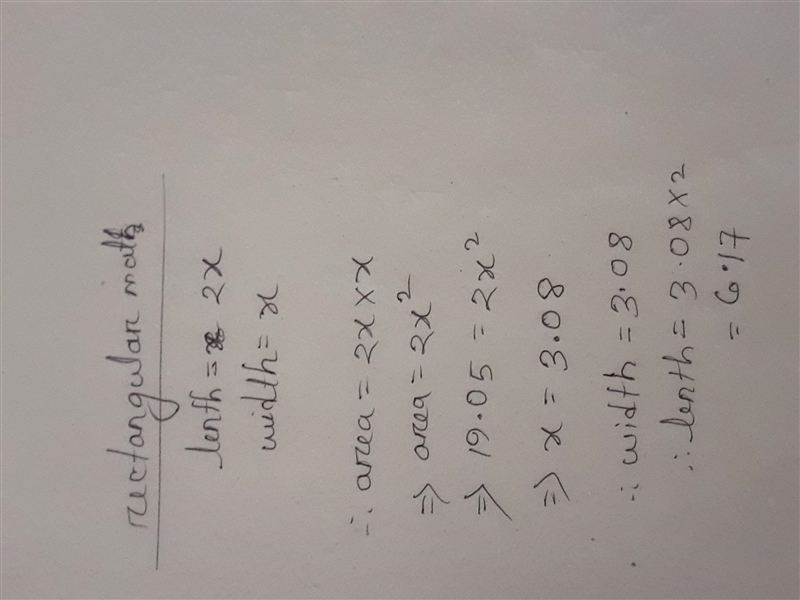 rectangular math
lenth = 2x
width = x
∴ area = 2x × x
⇒ area = 2x²
⇒ 19.05 = 2x²
⇒ x = 3.08
∴ width = 3.08
∴ lenth = 3.08 × 2
= 6.17